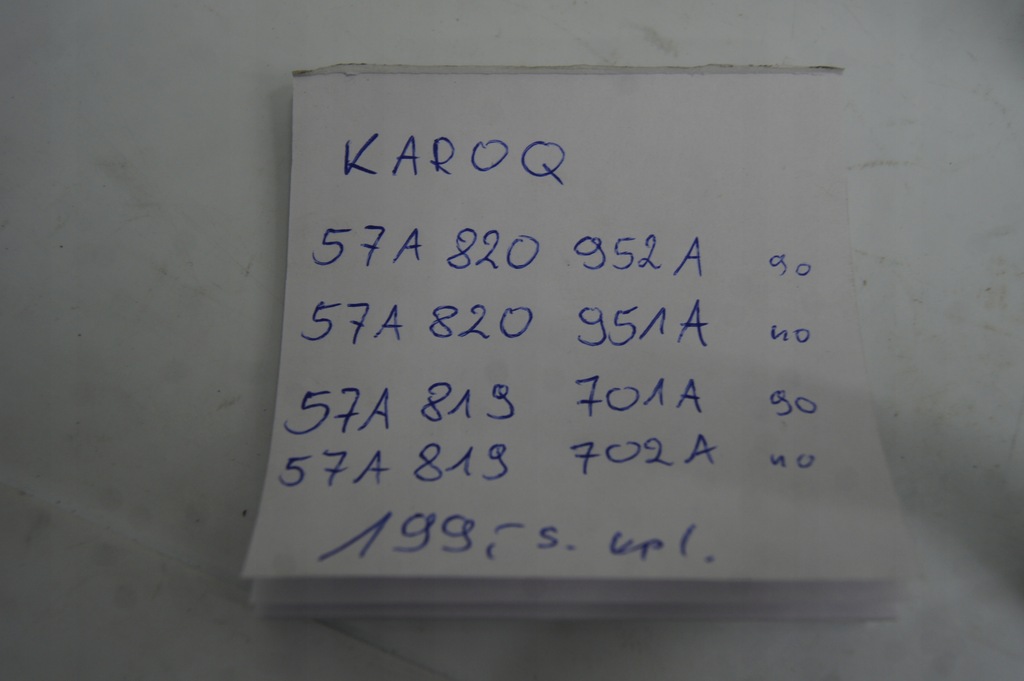 KAROQ
57A 820 952A 90
57A 820 951A no
57A 819 701A 90
57A 819 702A no
199,- s.